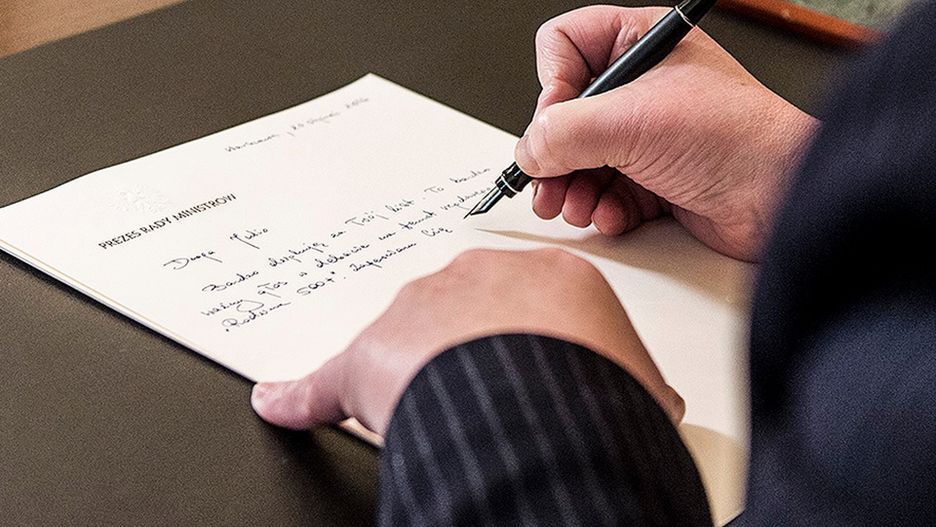 Warszawa, 20 stycznia 2016
PREZES RADY MINISTRÓW
Droga Julio
Bardzo dziękuję za Twój list. To bardzo
ważny głos w debacie na temat
"Rodzina 500+". Zapewniam Cię